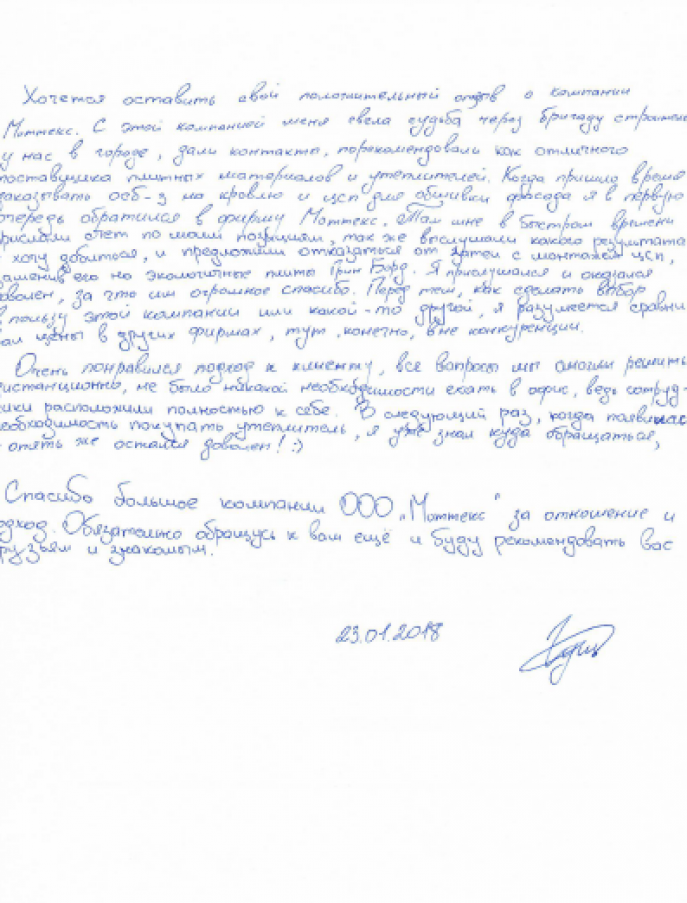 Хочется оставить свой положительный отзыв о компании
Моттекс. С этой компанией меня свела судьба через бригаду строителе
у нас в городе, дали контакты, порекомендовали как отличного
поставщика плитных материалов и утеплителей. Когда пришло время
заказывать осб-3 на кровлю и цсп для обшивки фасада я в первую
очередь обратился в фирму Моттекс. Там мне в быстром времени
прислали счет по моим позициям, так же выслушали какого результата
хочу добиться, и предложили отказаться от затеи с монтажей цсп,
заменив его на экологичные плиты Грин Борд. Я прислушался и оказался
доволен, за что им огромное спасибо. Перед тем, как сделать выбор
в пользу этой компании или какой-то другой, я разумеется сравни
вал цены в других фирмах, тут, конечно, вне конкуренции.
Очень понравился подход к клиенту, все вопросы мы смогли решить
дистанционно, не было никакой необходимости ехать в офис, ведь сотруд-
ники расположили полностью к себе. В следующий раз, когда появилась
необходимость покупать утеплитель, я уже знал куда обращаться,
опять же остался доволен! :)
Спасибо большое компании ООО „Моттекс" за отношение и
подход. Обязательно обращусь к вам ещё и буду рекомендовать вас
друзьям и знакомым.
23.01.2018